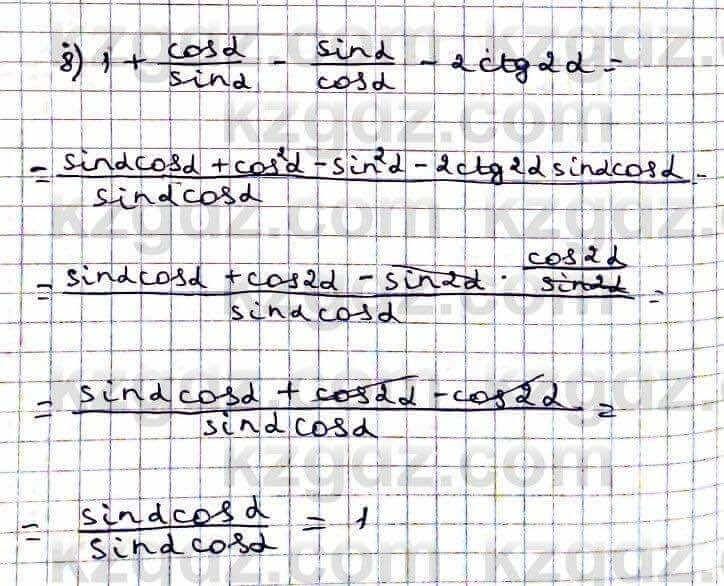 8) 1 + cosα/sinα - sinα/cosα - 2ctg2α =
= (sinαcosα + cos²α - sin²α - 2ctg2α sinαcosα)/(sinαcosα) =
= (sinαcosα + cos2α - sin2α · cos2α/sin2α)/(sinαcosα) =
= (sinαcosα + cos2α - cos2α)/(sinαcosα) =
= sinαcosα/sinαcosα = 1
kzgdz.com